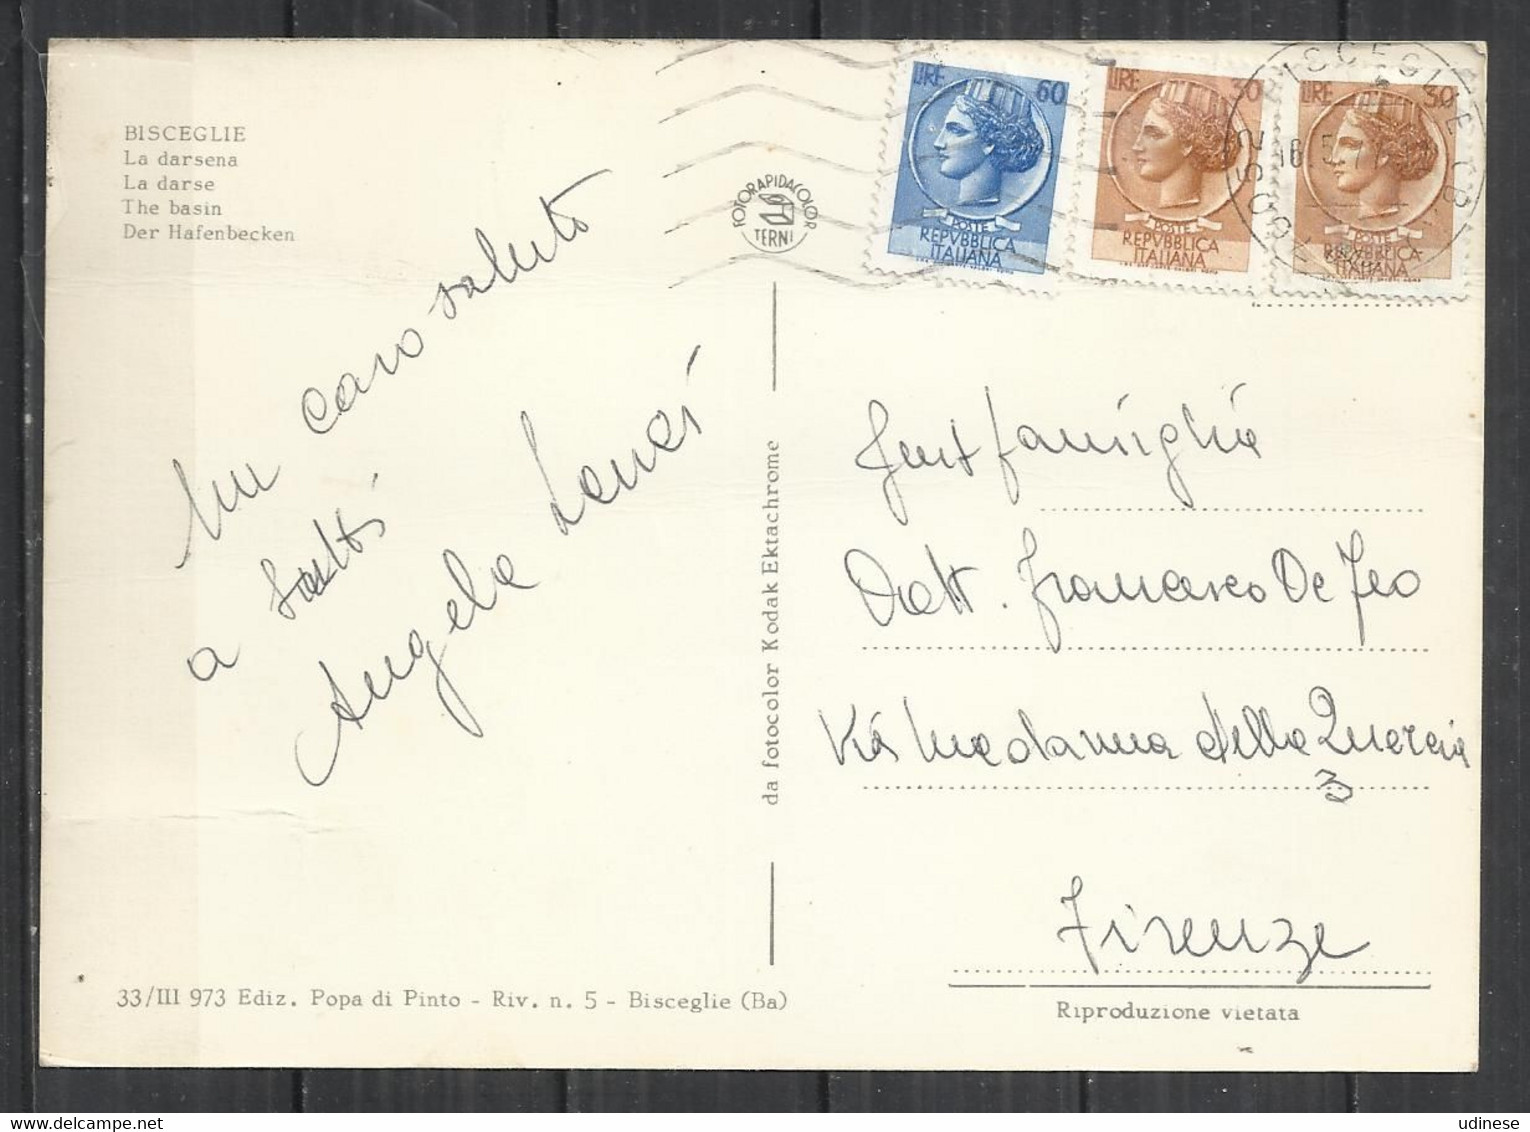 BISCEGLIE
La darsena
La darse
The basin
Der Hafenbecken
FOTORAPIDACOLOR
TERNI
LIRE 60
POSTE
REPVBBLICA
ITALIANA
LIRE 30
POSTE
REPVBBLICA
ITALIANA
LIRE 30
POSTE
REPVBBLICA
ITALIANA
BISCEGLIE
Un caro saluto
a tutti
Angela
da fotocolor Kodak Ektachrome
Gent famiglia
Dott. Francesco De Feo
Via Madonna della Quercia
3
Firenze
33/III 973 Ediz. Popa di Pinto - Riv. n. 5 - Bisceglie (Ba)
Riproduzione vietata
udinese